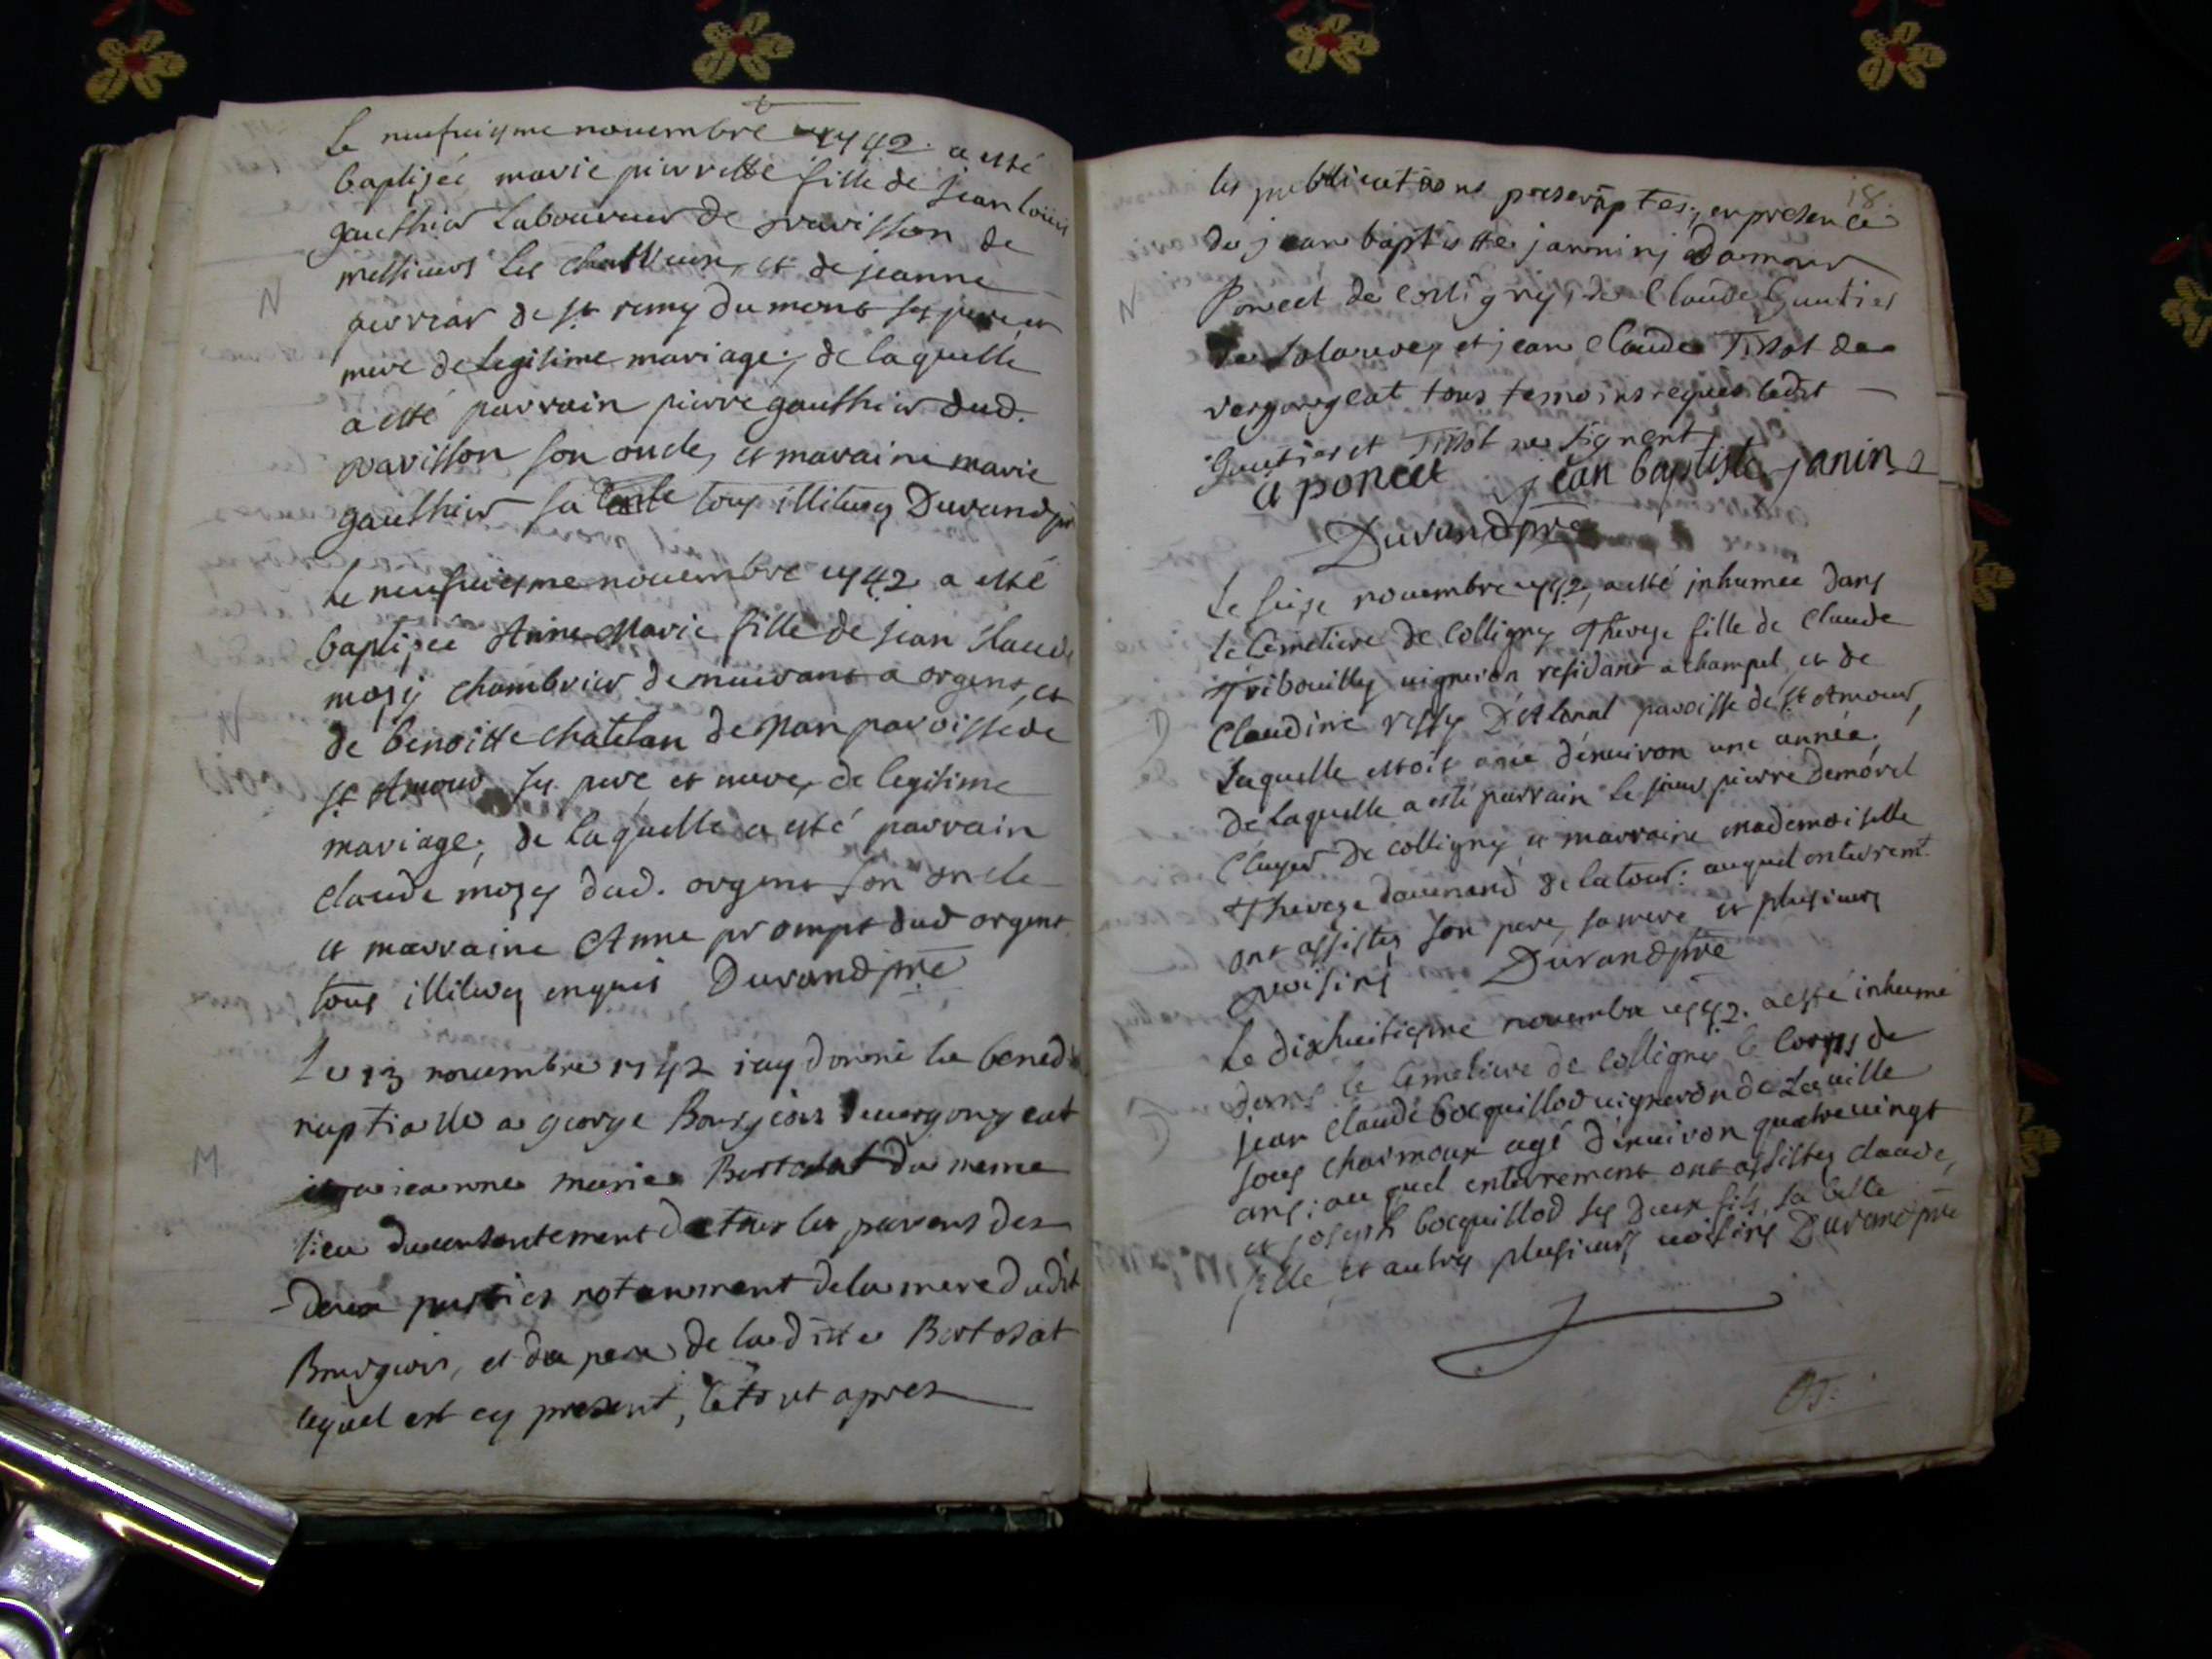 Le neufuiesme nouembre 1742. a esté
baptisée marie pierrette fille de jean louis
gauthier Laboureur de
messieurs les et de jeanne
de st remy du mont ses pere et
mere de legitime mariage; de laquelle
a esté parrain pierre gauthier dud.
son oncle, et maraine marie
gauthier sa tante tous illiterez Durand pre
Le neufuiesme nouembre 1742 a esté
baptisée Anne Marie fille de jean Claude
mozy chambrier demeurant a orgent, et
de benoitte chatelan de Nan paroisse de
st Amour ses pere et mere, de legitime
mariage; de laquelle a esté parrain
Claude mozy dud. orgent son oncle
et marraine Anne prompt dud orgent
tous illiterez enquis Durand pre
N
Le 13 novembre 1742 iay donné la bened
nuptialle a george Bourgeois de vergongeat
et a jeanne marie Bertodat du meme
M
lieu du consentement de tous les parens des
deux parties notamment de la mere dudit
Bourgeois, et du pere de laditte Bertodat
lequel est cy present, le tout apres
18.
les publications prescriptes, en presence
de jean baptiste jannin, damour
Poncet de colligny, de Claude Gautier
N
de et jean Claude Tissot de
vergongeat tous temoins requis ledit
gautier et Tissot ne signent
a poncet jean baptiste janin
Durand pre
Le seize nouembre 1742, a esté inhumée dans
le Cemetiere de Colligny Therese fille de Claude
Tribouilly uigneron residant a champel, et de
Claudine paroisse de St Amour,
D
laquelle estoit agée d'enuiron une année;
de laquelle a esté parrain le sieur pierre Demorel
Ecuyer de colligny et marraine mademoiselle
Therese de latour: auquel enterremt
ont assistez son pere, sa mere et plusieurs
voisins Durand pre
Le dixhuitiesme nouembre 1742. a esté inhumé
dans le Cemetiere de Colligny le Corps de
jean Claude bocquillod uigneron de La uille
D
sous charmoux agé d'enuiron quatreuingt
ans; au quel enterrement ont assistez Claude,
et joseph bocquillod ses deux fils, sa belle
fille et autres plusieurs uoisins Durand pre